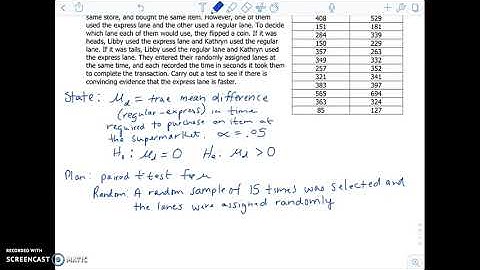 same store, and bought the same item. However, one of them
used the express lane and the other used a regular lane. To decide
which lane each of them would use, they flipped a coin. If it was
heads, Libby used the express lane and Kathryn used the regular
lane. If it was tails, Libby used the regular lane and Kathryn used
the express lane. They entered their randomly assigned lanes at
the same time, and each recorded the time in seconds it took them
to complete the transaction. Carry out a test to see if there is
convincing evidence that the express lane is faster.
408 529
151 181
284 339
150 229
357 263
349 332
257 352
321 341
383 397
565 694
363 324
85 127
State: μd = true mean difference
(regular-express) in time
required to purchase an item at
the supermarket. α = .05
H₀: μd = 0 Ha: μd > 0
Plan: paired t test for μ
Random: A random sample of 15 times was selected and
the lanes were assigned randomly
RECORDED WITH
SCREENCAST MATIC